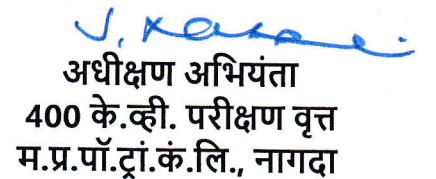 अधीक्षण अभियंता
400 के.व्ही. परीक्षण वृत्त
म.प्र.पॉ.ट्रां.कं.लि., नागदा